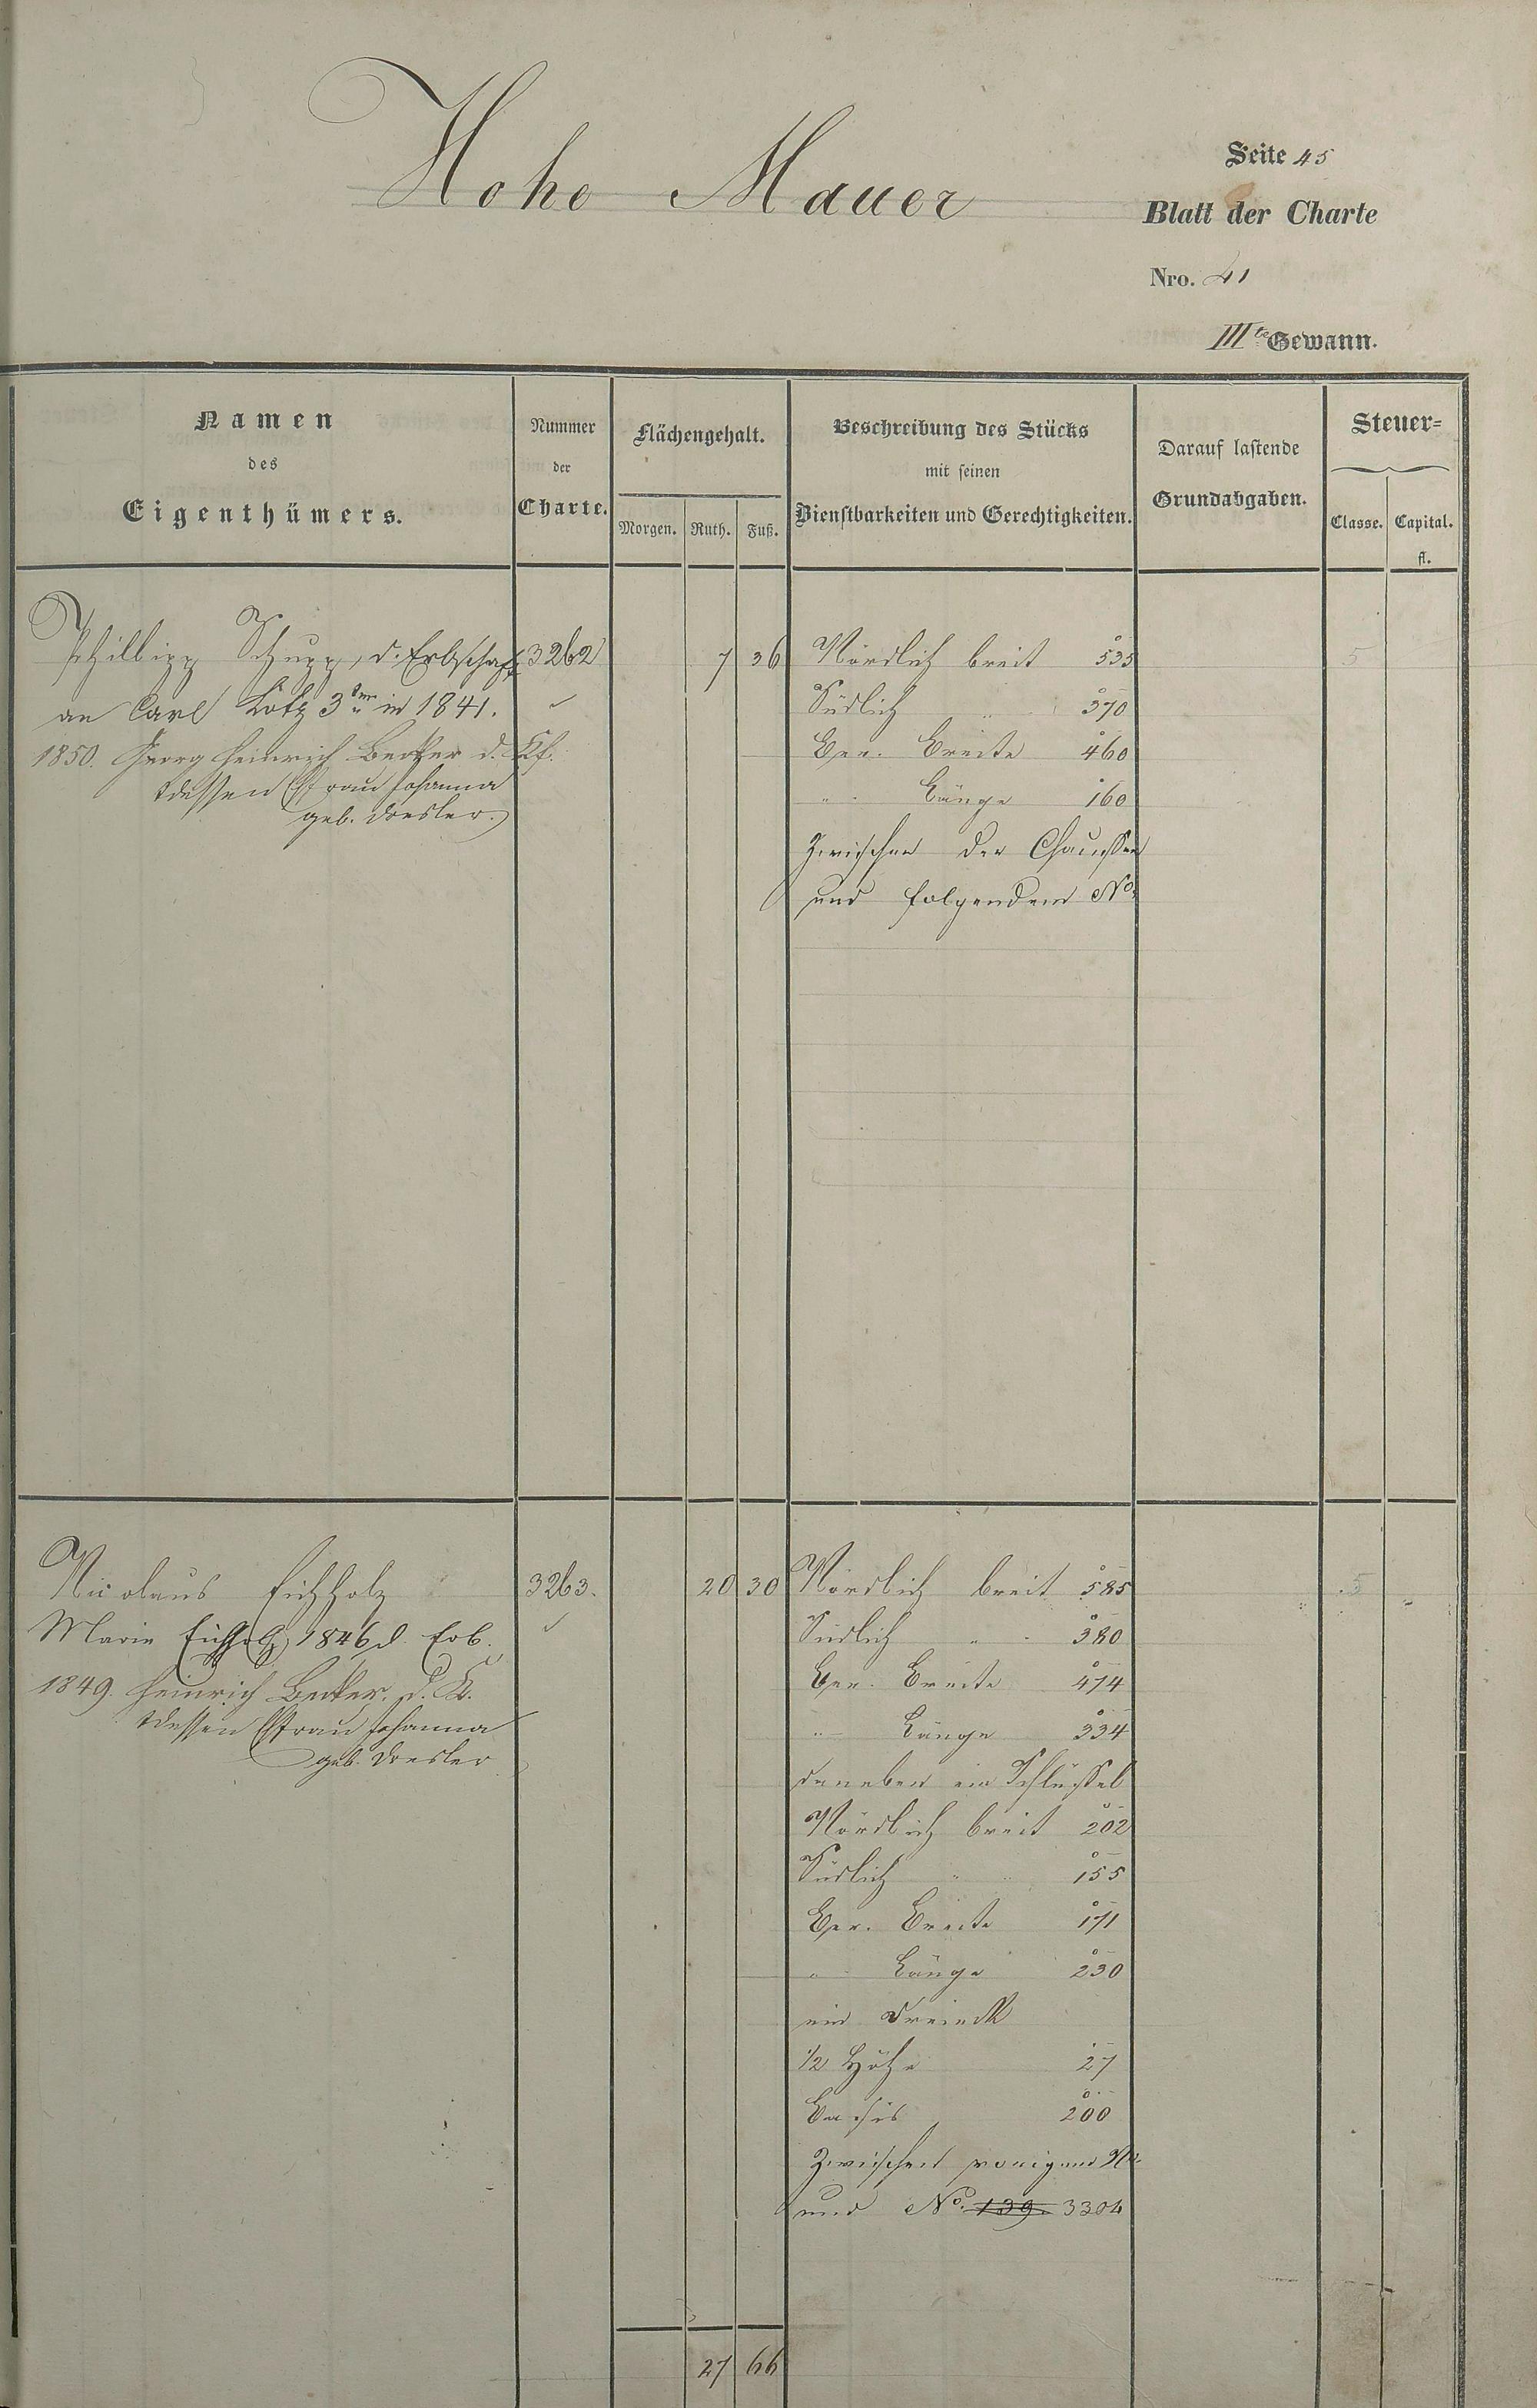 Hohe Mauer
Seite 45
Blatt der Charte
Nro. 41
IIIte Gewann.
Namen
des
Eigenthümers.
Nummer
der
Charte.
Flächengehalt.
Morgen. Ruth. Fuß.
Beschreibung des Stücks
mit seinen
Dienstbarkeiten und Gerechtigkeiten.
Darauf lastende
Grundabgaben.
Steuer-
Classe. Capital.
fl.
Philipp Schupp, d. Erbschaft 3262 7 36 Nördlich breit 535 5
an Carl Lotz 3ten in 1841. Südlich " 370
1850. Georg Heinrich Becker d. Kf. Ger. Breite 460
& dessen Ehfrau Johanna " Länge 160
geb. Dresler.
Zwischen der Chaussee
und folgendem No.
Nicolaus Eichholz 3263. 20 30 Nördlich breit 585 5
Marie Eichholz 1846 d. Erb. Südlich " 380
1849. Heinrich Becker. d. K. Ger. Breite 474
& dessen Ehfrau Johanna " Länge 334
geb. Dresler
daneben ein Schlüssel
Nördlich breit 202
Südlich " 155
Ger. Breite 171
" Länge 230
ein Dreieck
1/2 Höhe 27
Basis 200
Zwischen vorigem No.
und No. 139. 3304
27 66